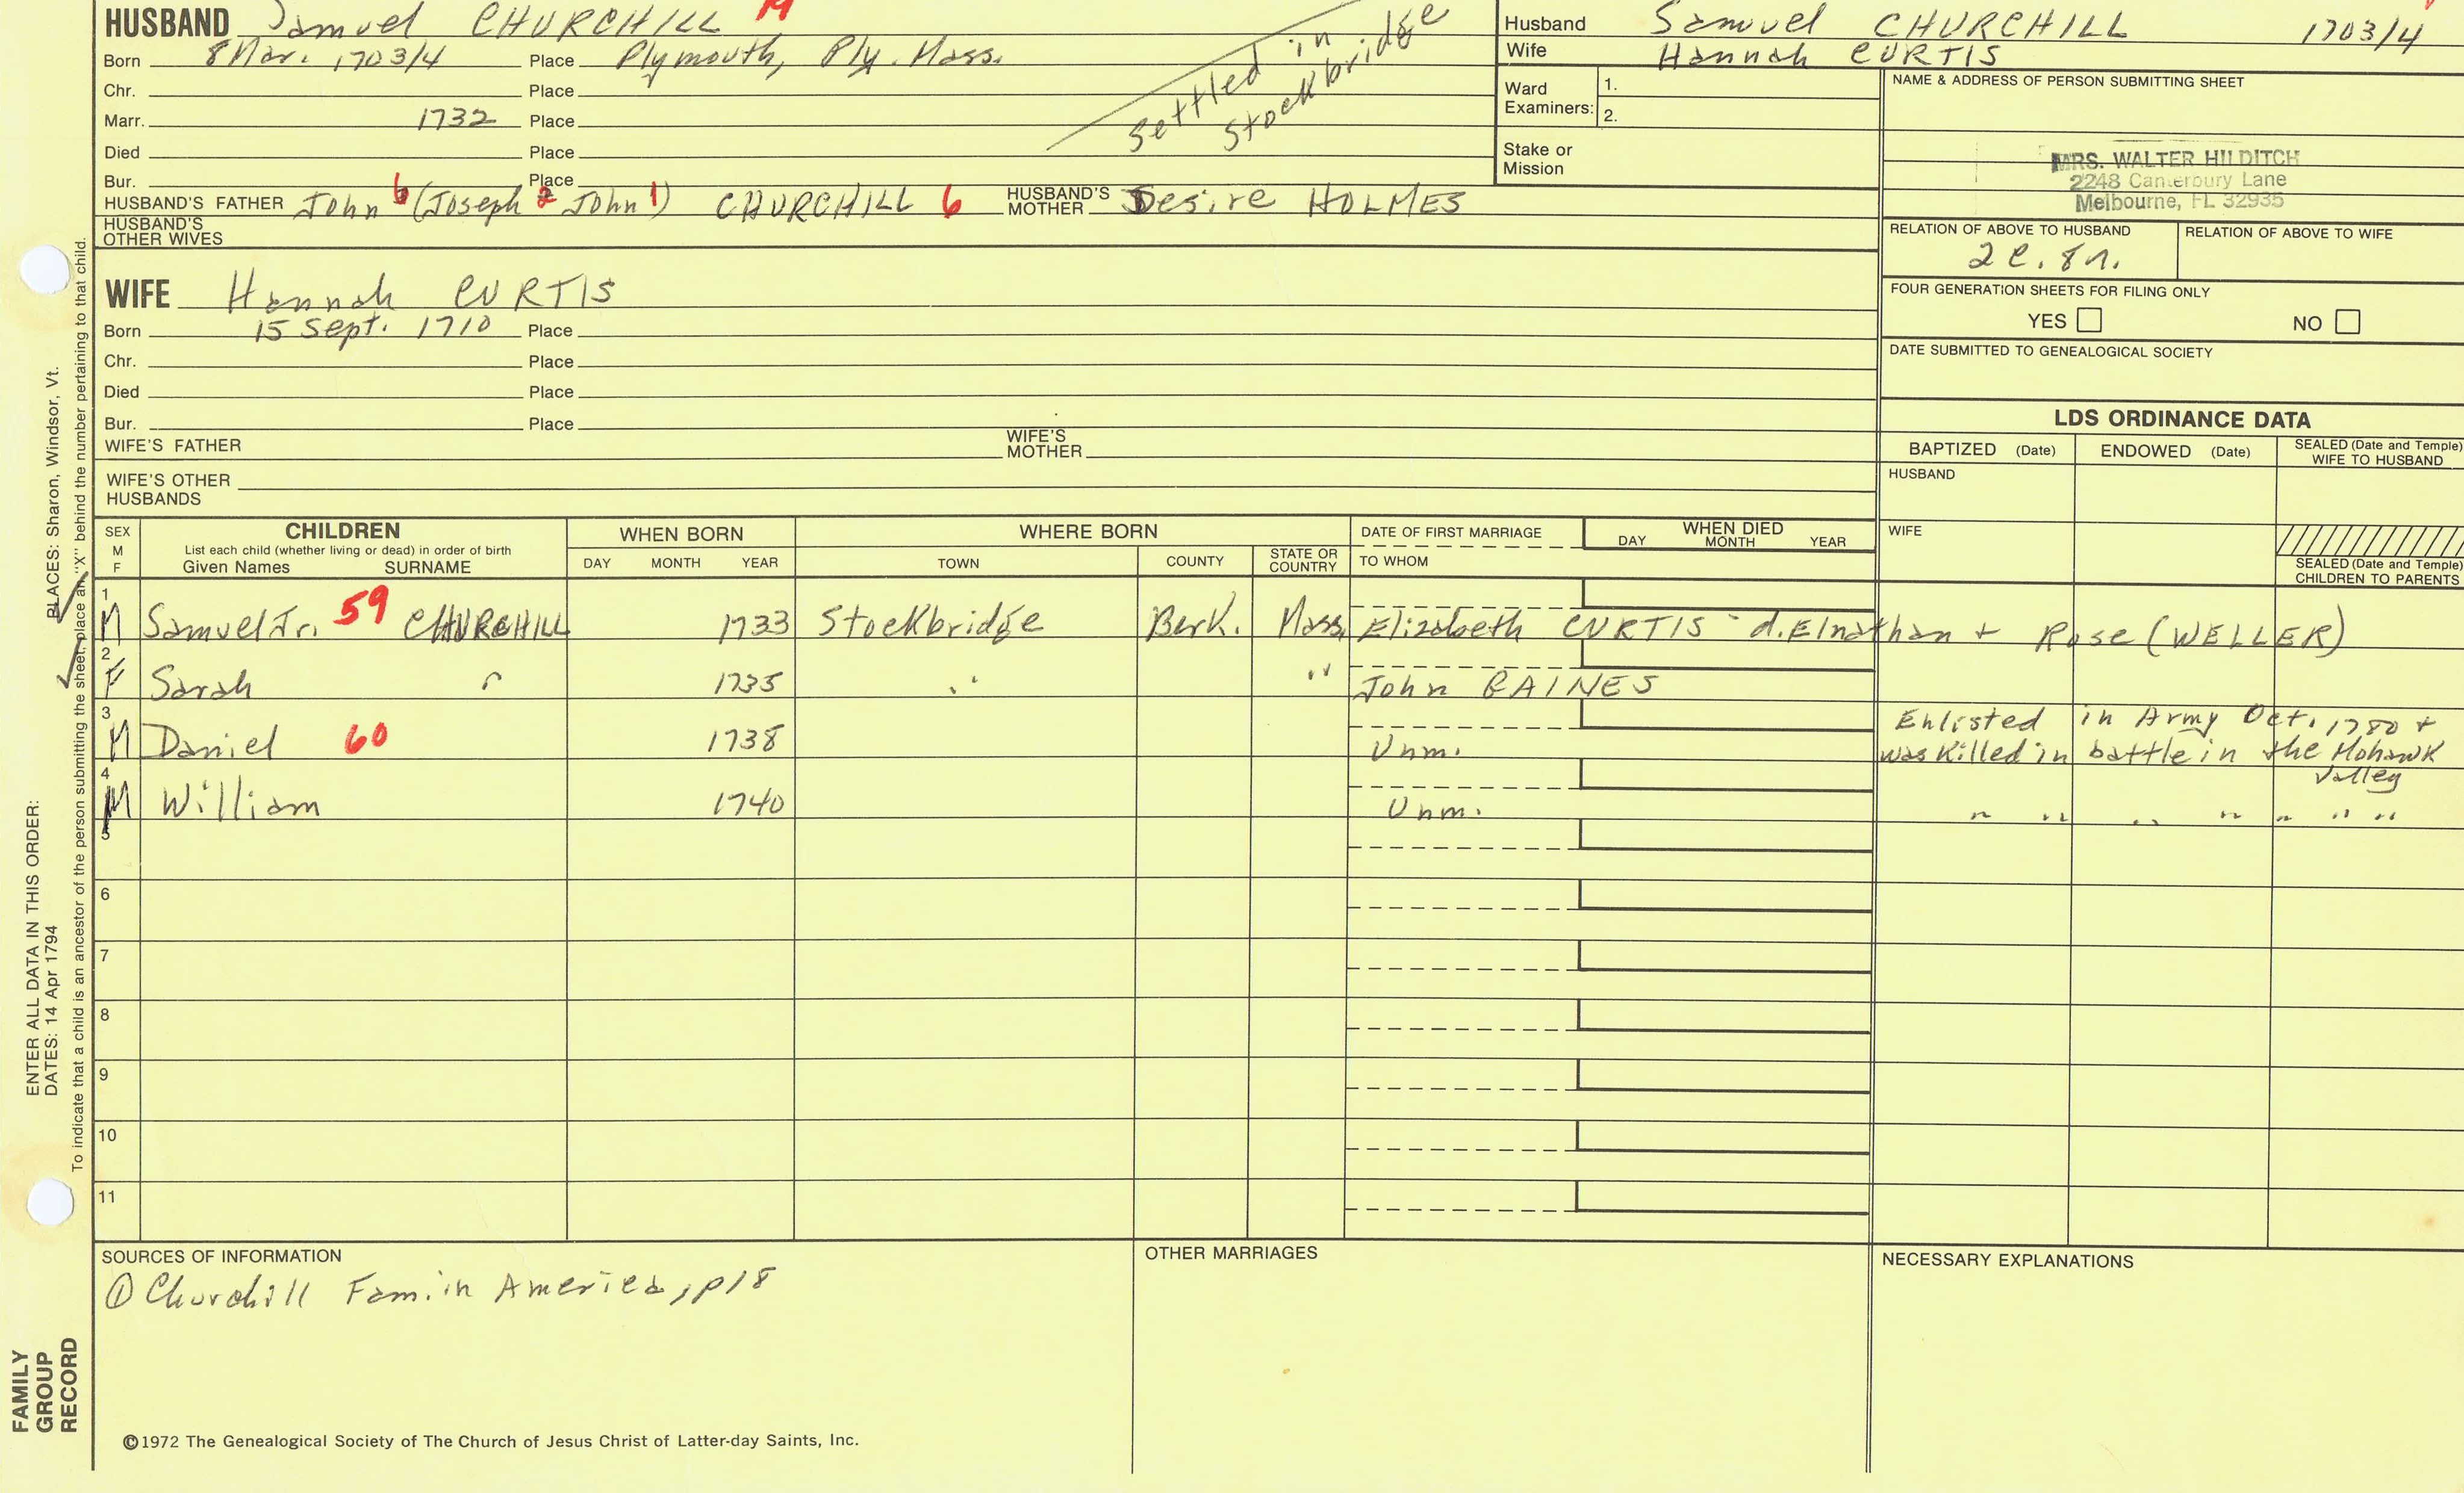 HUSBAND Samuel CHURCHILL 19
Born 8 Mar. 1703/4 Place Plymouth, Ply. Mass.
Chr. Place
Marr. 1732 Place
Died Place
Bur. Place
Settled in
Stockbridge
HUSBAND'S FATHER John (Joseph 2 John 1) CHURCHILL 6 HUSBAND'S MOTHER Desire HOLMES
HUSBAND'S OTHER WIVES
WIFE Hannah CURTIS
Born 15 Sept. 1710 Place
Chr. Place
Died Place
Bur. Place
WIFE'S FATHER WIFE'S MOTHER
WIFE'S OTHER HUSBANDS
Husband Samuel CHURCHILL 1703/4
Wife Hannah CURTIS
Ward Examiners: 1.
2.
Stake or Mission
NAME & ADDRESS OF PERSON SUBMITTING SHEET
MRS. WALTER HILDITCH
2248 Canterbury Lane
Melbourne, FL 32935
RELATION OF ABOVE TO HUSBAND RELATION OF ABOVE TO WIFE
2 c. 8 r.
FOUR GENERATION SHEETS FOR FILING ONLY
YES NO
DATE SUBMITTED TO GENEALOGICAL SOCIETY
LDS ORDINANCE DATA
BAPTIZED (Date) ENDOWED (Date) SEALED (Date and Temple) WIFE TO HUSBAND
HUSBAND
WIFE
SEALED (Date and Temple) CHILDREN TO PARENTS
SEX M F CHILDREN WHEN BORN WHERE BORN DATE OF FIRST MARRIAGE WHEN DIED
List each child (whether living or dead) in order of birth
Given Names SURNAME DAY MONTH YEAR TOWN COUNTY STATE OR COUNTRY TO WHOM DAY MONTH YEAR
1 M Samuel Jr. 59 CHURCHILL 1733 Stockbridge Berk. Mass. Elizabeth CURTIS - d. Elnathan + Rose (WELLER)
2 F Sarah " 1735 " " John GAINES
3 M Daniel 60 1738 Unm. Enlisted in Army Oct. 1780 +
was Killed in battle in the Mohawk
Valley
4 M William 1740 Unm. " " " " " " "
5
6
7
8
9
10
11
SOURCES OF INFORMATION
① Churchill Fam. in America, p18
OTHER MARRIAGES
NECESSARY EXPLANATIONS
©1972 The Genealogical Society of The Church of Jesus Christ of Latter-day Saints, Inc.
ENTER ALL DATA IN THIS ORDER:
DATES: 14 Apr 1794 PLACES: Sharon, Windsor, Vt.
To indicate that a child is an ancestor of the person submitting the sheet, place an "X" behind the number pertaining to that child.
FAMILY
GROUP
RECORD